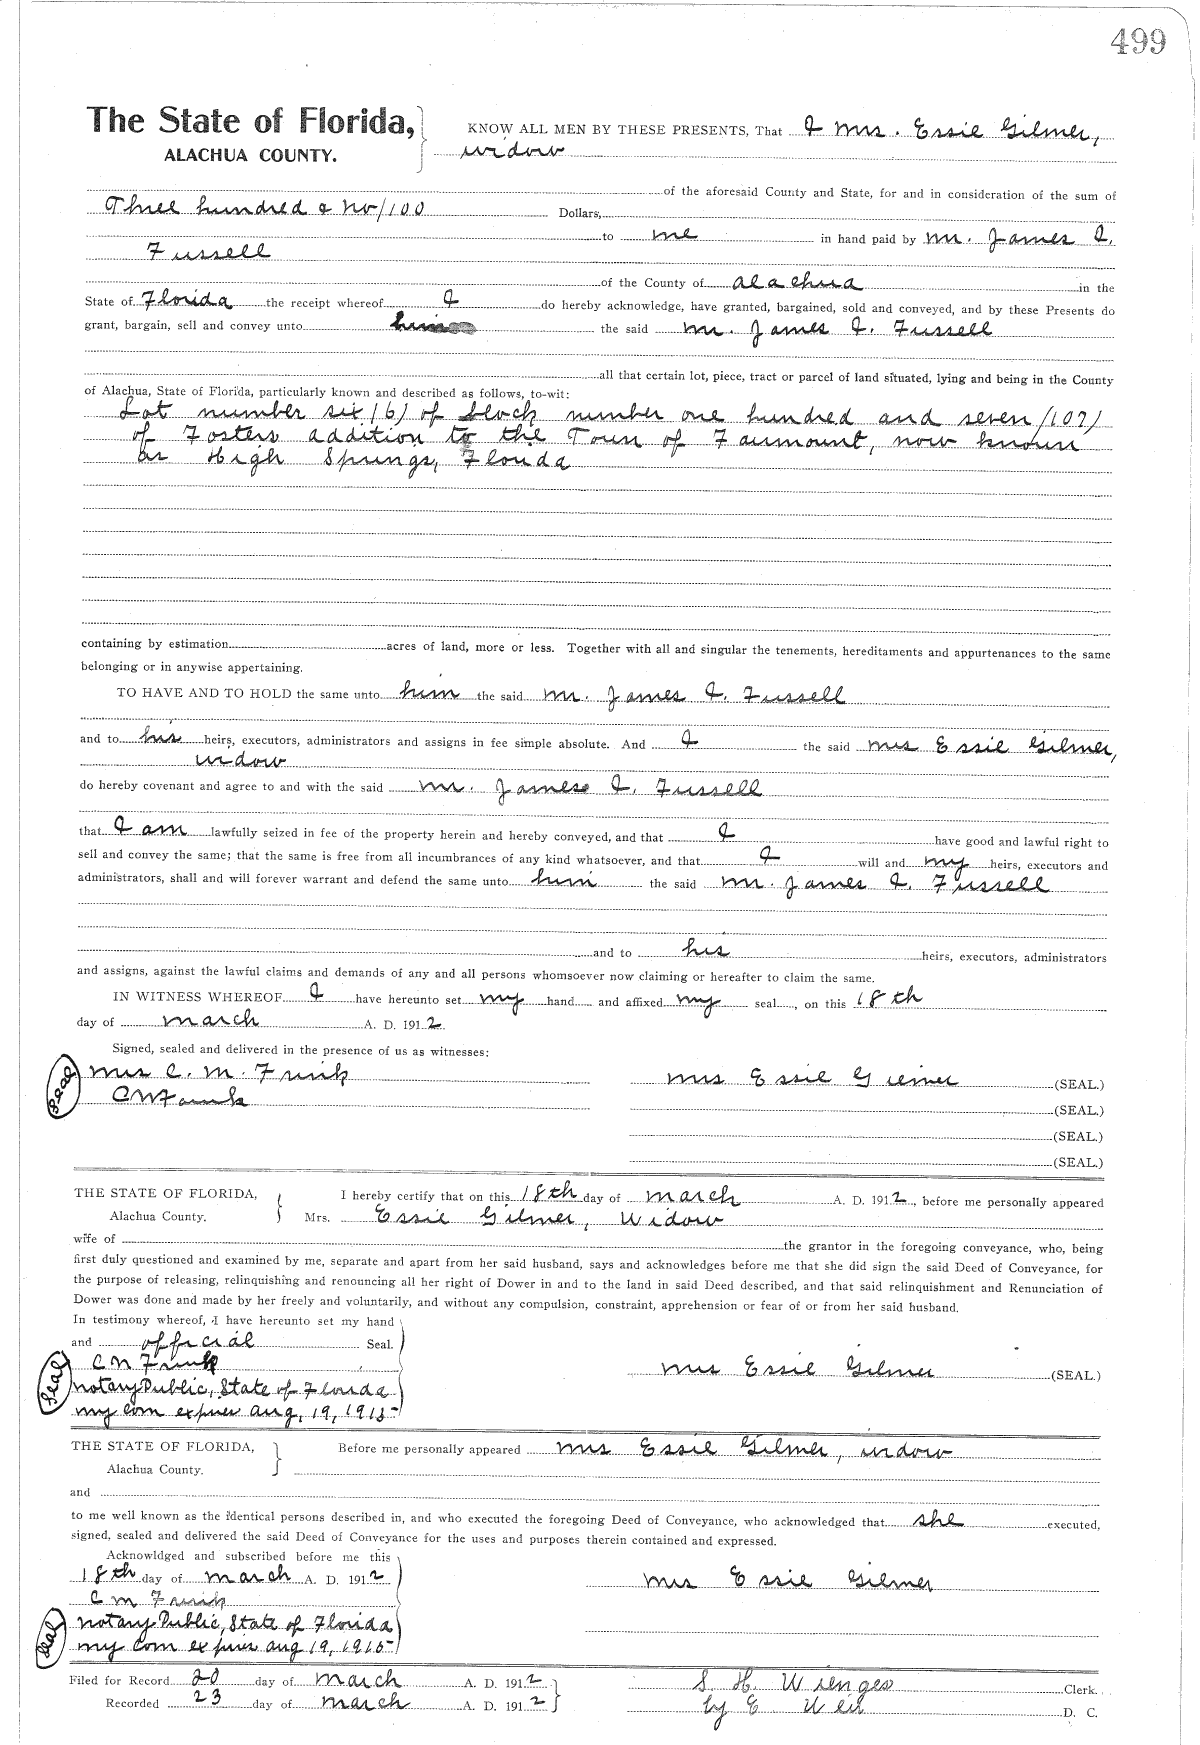 499
The State of Florida,
ALACHUA COUNTY.
KNOW ALL MEN BY THESE PRESENTS, That I Mrs. Essie Gilmer,
widow
of the aforesaid County and State, for and in consideration of the sum of
Three hundred & no/100 Dollars,
to me in hand paid by Mr. James I.
Fussell
of the County of Alachua in the
State of Florida the receipt whereof I do hereby acknowledge, have granted, bargained, sold and conveyed, and by these Presents do
grant, bargain, sell and convey unto him the said Mr. James I. Fussell
all that certain lot, piece, tract or parcel of land situated, lying and being in the County
of Alachua, State of Florida, particularly known and described as follows, to-wit:
Lot number six (6) of block number one hundred and seven (107)
of Fosters addition to the Town of Fairmount, now known
as High Springs, Florida
containing by estimation acres of land, more or less. Together with all and singular the tenements, hereditaments and appurtenances to the same
belonging or in anywise appertaining.
TO HAVE AND TO HOLD the same unto him the said Mr. James I. Fussell
and to his heirs, executors, administrators and assigns in fee simple absolute. And I the said Mrs Essie Gilmer,
widow
do hereby covenant and agree to and with the said Mr. James I. Fussell
that I am lawfully seized in fee of the property herein and hereby conveyed, and that I have good and lawful right to
sell and convey the same; that the same is free from all incumbrances of any kind whatsoever, and that I will and my heirs, executors and
administrators, shall and will forever warrant and defend the same unto him the said Mr. James I. Fussell
and to his heirs, executors, administrators
and assigns, against the lawful claims and demands of any and all persons whomsoever now claiming or hereafter to claim the same.
IN WITNESS WHEREOF I have hereunto set my hand and affixed my seal, on this 18th
day of March A. D. 1912.
Signed, sealed and delivered in the presence of us as witnesses:
Seal Mrs C. M. Frink Mrs Essie Gilmer (SEAL.)
C M Frink (SEAL.)
(SEAL.)
(SEAL.)
THE STATE OF FLORIDA,
Alachua County.
I hereby certify that on this 18th day of March A. D. 1912, before me personally appeared
Mrs. Essie Gilmer, Widow
wife of the grantor in the foregoing conveyance, who, being
first duly questioned and examined by me, separate and apart from her said husband, says and acknowledges before me that she did sign the said Deed of Conveyance, for
the purpose of releasing, relinquishing and renouncing all her right of Dower in and to the land in said Deed described, and that said relinquishment and Renunciation of
Dower was done and made by her freely and voluntarily, and without any compulsion, constraint, apprehension or fear of or from her said husband.
In testimony whereof, I have hereunto set my hand
and official Seal.
C M Frink Mrs Essie Gilmer (SEAL.)
Seal Notary Public, State of Florida
my com expires Aug, 19, 1915
THE STATE OF FLORIDA,
Alachua County.
Before me personally appeared Mrs Essie Gilmer, widow
and
to me well known as the identical persons described in, and who executed the foregoing Deed of Conveyance, who acknowledged that she executed,
signed, sealed and delivered the said Deed of Conveyance for the uses and purposes therein contained and expressed.
Acknowldged and subscribed before me this
18th day of March A. D. 1912 Mrs Essie Gilmer
C M Frink
Seal Notary Public, State of Florida
my com expires Aug 19, 1915
Filed for Record 20 day of March A. D. 1912 S. H. Wienges Clerk.
Recorded 23 day of March A. D. 1912 by E Weil D. C.